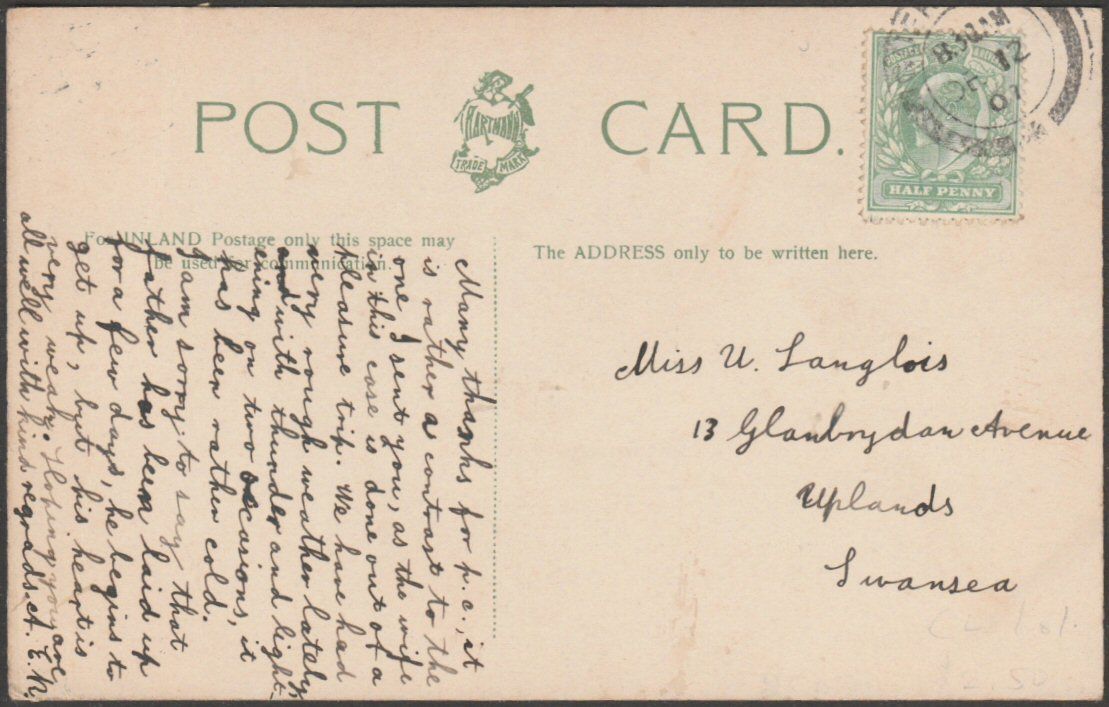 POST CARD.
HARTMANN
TRADE MARK
8.30AM
12
HALF PENNY
For INLAND Postage only this space may
be used for communication.
The ADDRESS only to be written here.
Many thanks for p.c., it
is rather a contrast to the
one I sent you, as the wife
in this case is done out of a
pleasure trip. We have had
very rough weather lately,
and with thunder and light
ening on two occasions, it
has been rather cold.
I am sorry to say that
father has been laid up
for a few days, he begins to
get up, but his heart is
very weak. Hoping you are
all well with kind regrads. A. E. N.
Miss U. Langlois
13 Glanbrydan Avenue
Uplands
Swansea